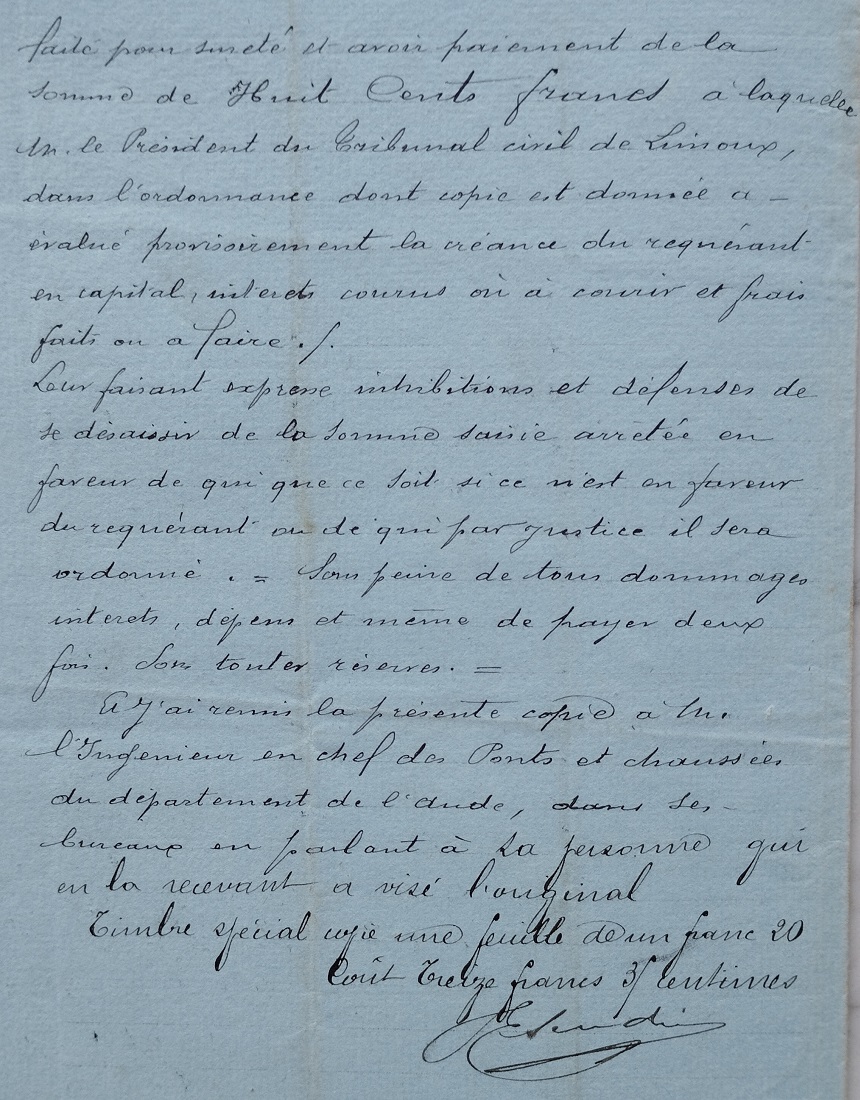 faite pour sureté et avoir paiement de la
somme de Huit Cents francs à laquelle
M. le Président du Tribunal civil de Limoux,
dans l'ordonnance dont copie est donnée a -
évalué provisoirement la créance du requérant
en capital, interets courus ou à courir et frais
faits ou a faire ./.
Leur faisant expresse inhibitions et défenses de
se désaisir de la somme saisie arretée en
faveur de qui que ce soit si ce n'est en faveur
du requérant ou de qui par justice il sera
ordonné . = Sous peine de tous dommages
interets, dépens et même de payer deux
fois. Sous toutes réserves. =
Et j'ai remis la présente copie à M.
l'Ingenieur en chef des Ponts et chaussées
du département de l'Aude, dans ses -
bureaux en parlant à sa personne qui
en la recevant a visé l'original
Timbre spécial copie une feuille de un franc 20
Coût Treize francs 35 centimes